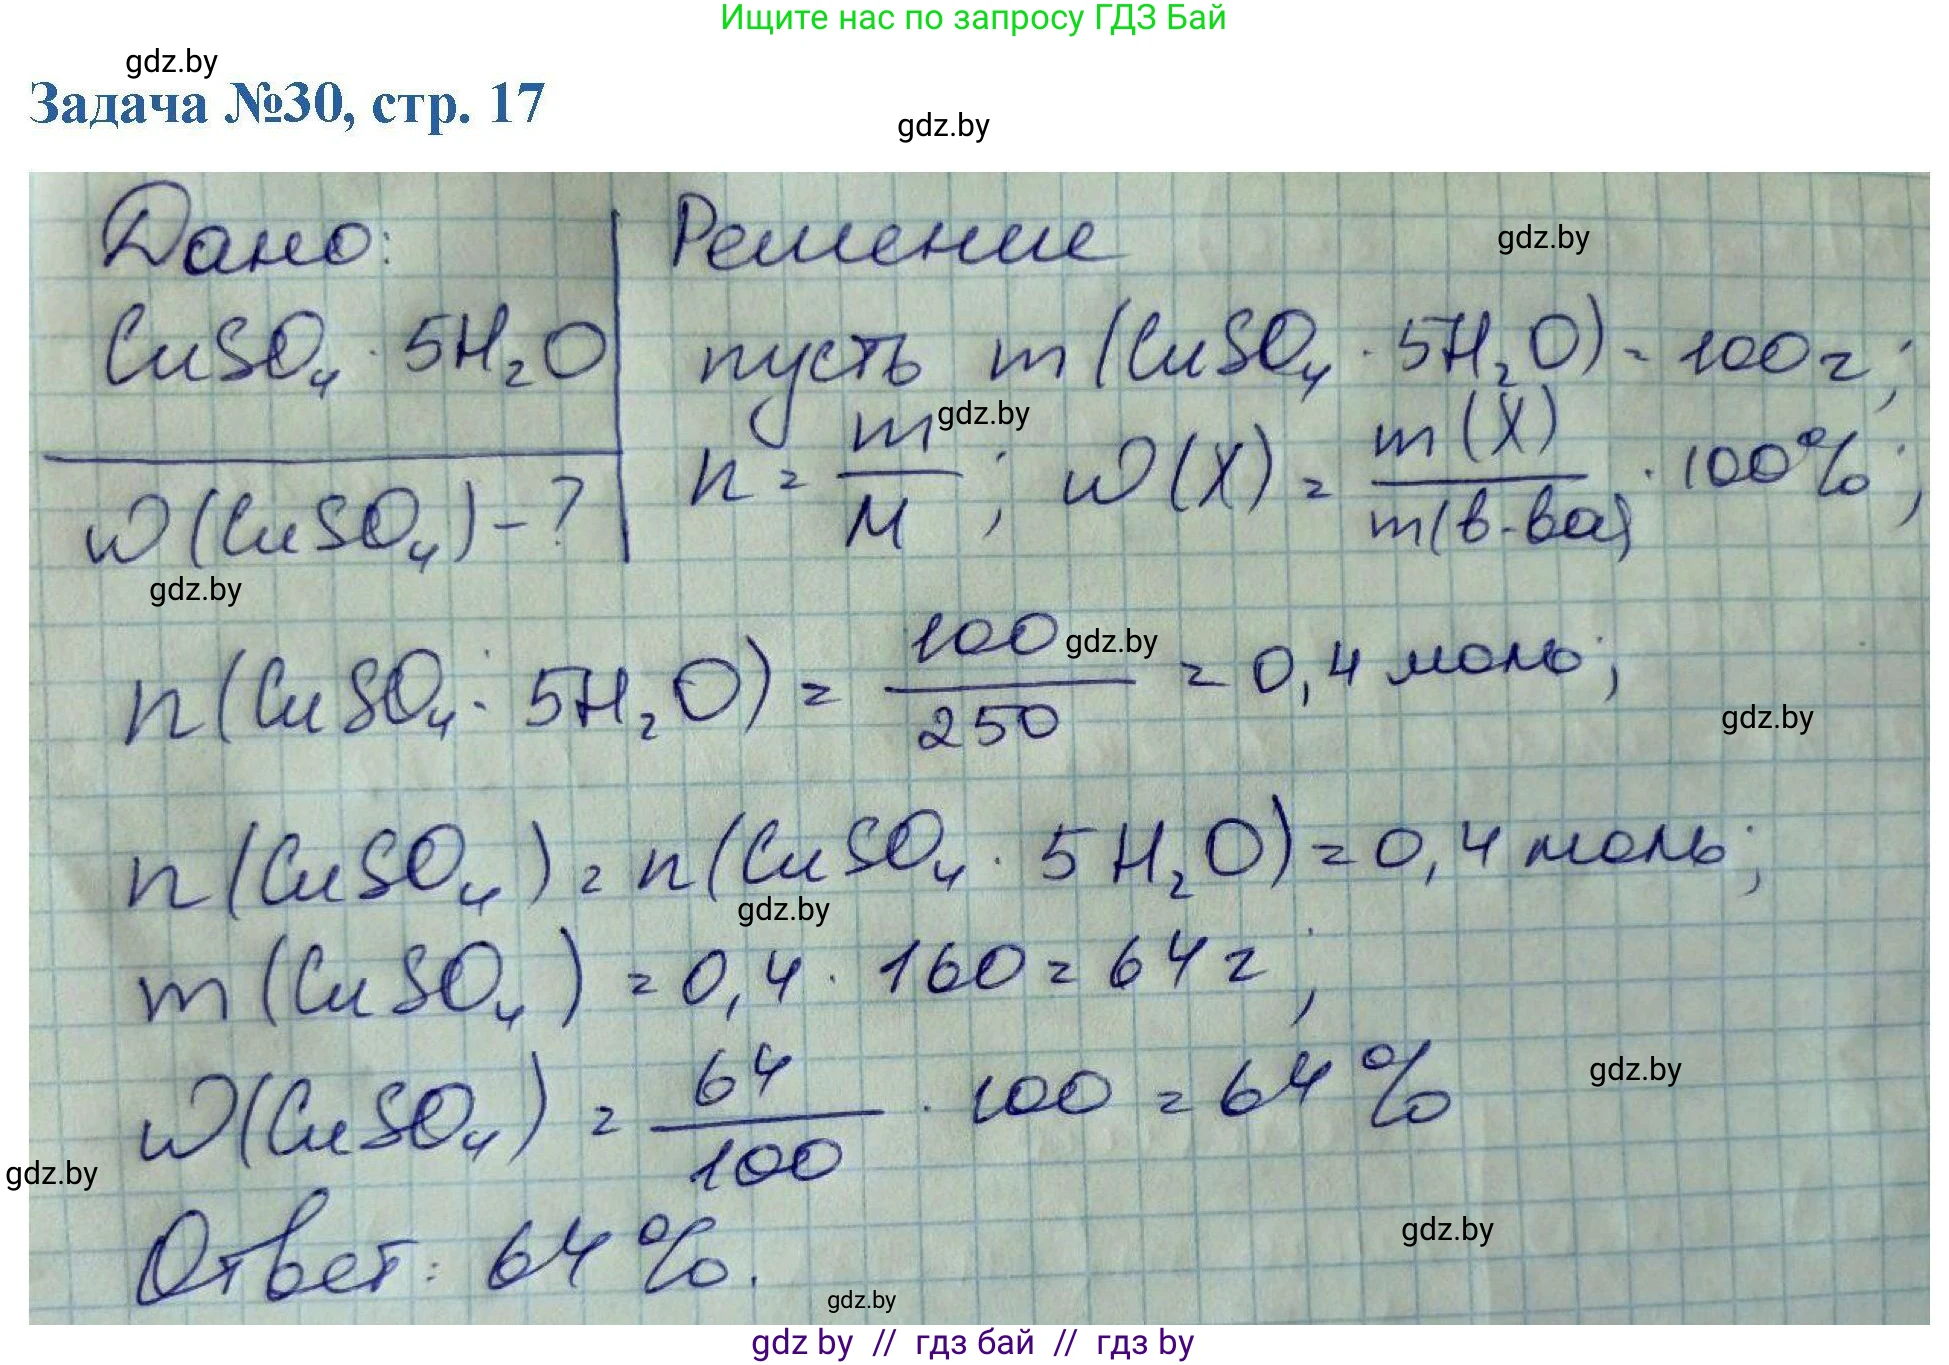 Ищите нас по запросу ГДЗ Бай
gdz.by
Задача №30, стр. 17
gdz.by
Дано:
CuSO₄ · 5H₂O
w(CuSO₄) - ?
gdz.by
Решение
gdz.by
пусть m(CuSO₄ · 5H₂O) = 100г;
gdz.by
n = m/M; w(X) = m(X)/m(в-ва) · 100%;
gdz.by
n(CuSO₄ · 5H₂O) = 100/250 = 0,4 моль;
gdz.by
n(CuSO₄) = n(CuSO₄ · 5H₂O) = 0,4 моль;
gdz.by
m(CuSO₄) = 0,4 · 160 = 64г;
w(CuSO₄) = 64/100 · 100 = 64%
gdz.by
gdz.by
Ответ: 64%.
gdz.by
gdz.by
gdz by // гдз бай // гдз by